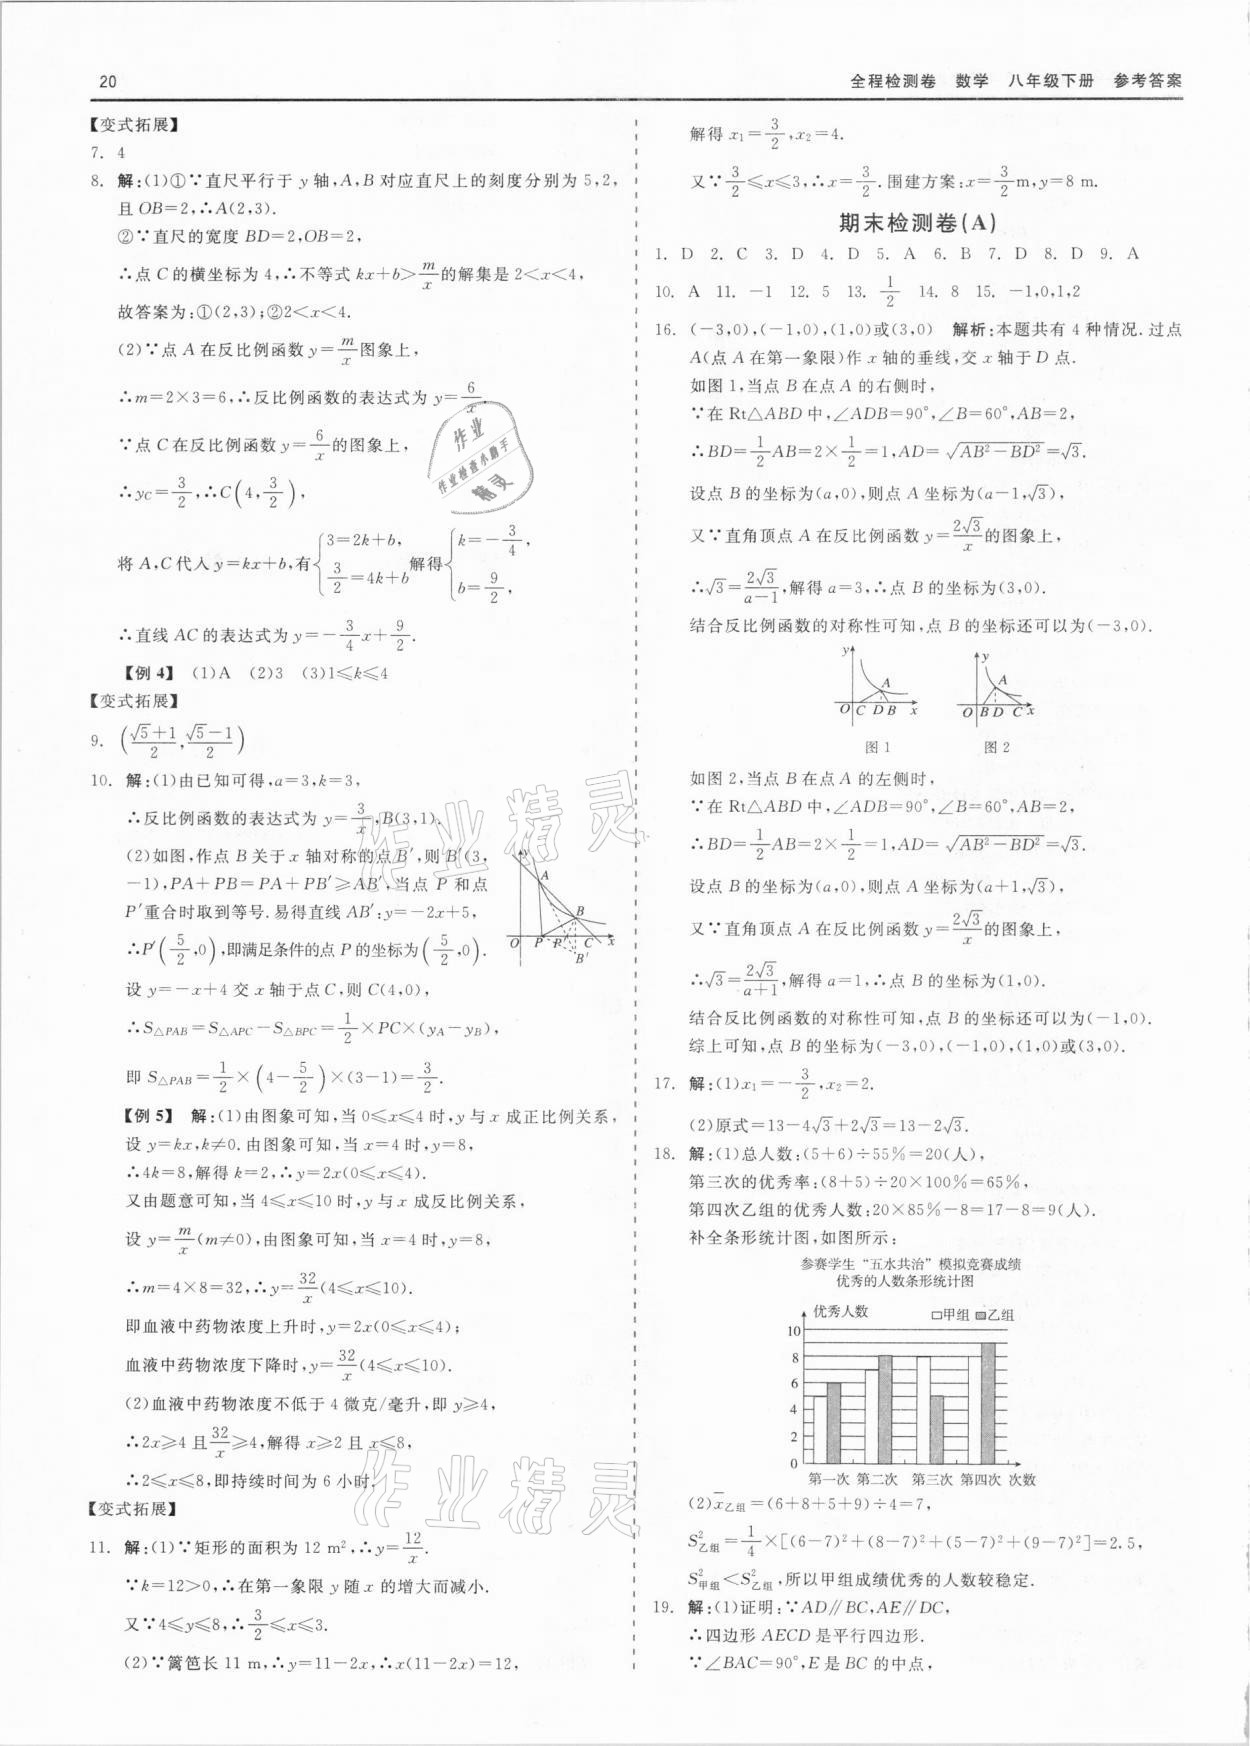 20
全程检测卷 数学 八年级下册 参考答案
【变式拓展】
7. 4
8. 解:(1)①∵直尺平行于 y 轴,A,B 对应直尺上的刻度分别为 5,2,
且 OB=2,∴A(2,3).
②∵直尺的宽度 BD=2,OB=2,
∴点 C 的横坐标为 4,∴不等式 kx+b>m/x 的解集是 2<x<4,
故答案为:①(2,3);②2<x<4.
(2)∵点 A 在反比例函数 y=m/x 图象上,
∴m=2×3=6,∴反比例函数的表达式为 y=6/x.
∵点 C 在反比例函数 y=6/x 的图象上,
∴yC=3/2,∴C(4,3/2),
将 A,C 代入 y=kx+b,有{3=2k+b, 3/2=4k+b 解得{k=-3/4, b=9/2,
∴直线 AC 的表达式为 y=-3/4x+9/2.
【例 4】 (1)A (2)3 (3)1≤k≤4
【变式拓展】
9. ((√5+1)/2,(√5-1)/2)
10. 解:(1)由已知可得,a=3,k=3,
∴反比例函数的表达式为 y=3/x,B(3,1).
(2)如图,作点 B 关于 x 轴对称的点 B′,则 B′(3,
-1),PA+PB=PA+PB′≥AB′,当点 P 和点
P′重合时取到等号.易得直线 AB′:y=-2x+5,
∴P′(5/2,0),即满足条件的点 P 的坐标为(5/2,0).
设 y=-x+4 交 x 轴于点 C,则 C(4,0),
∴S△PAB=S△APC-S△BPC=1/2×PC×(yA-yB),
即 S△PAB=1/2×(4-5/2)×(3-1)=3/2.
y A B O P P′ C x B′
【例 5】 解:(1)由图象可知,当 0≤x≤4 时,y 与 x 成正比例关系,
设 y=kx,k≠0.由图象可知,当 x=4 时,y=8,
∴4k=8,解得 k=2,∴y=2x(0≤x≤4).
又由题意可知,当 4≤x≤10 时,y 与 x 成反比例关系,
设 y=m/x(m≠0),由图象可知,当 x=4 时,y=8,
∴m=4×8=32,∴y=32/x(4≤x≤10).
即血液中药物浓度上升时,y=2x(0≤x≤4);
血液中药物浓度下降时,y=32/x(4≤x≤10).
(2)血液中药物浓度不低于 4 微克/毫升,即 y≥4,
∴2x≥4 且32/x≥4,解得 x≥2 且 x≤8,
∴2≤x≤8,即持续时间为 6 小时.
【变式拓展】
11. 解:(1)∵矩形的面积为 12 m²,∴y=12/x.
∵k=12>0,∴在第一象限 y 随 x 的增大而减小.
又∵4≤y≤8,∴3/2≤x≤3.
(2)∵篱笆长 11 m,∴y=11-2x,∴x(11-2x)=12,
解得 x1=3/2,x2=4.
又∵3/2≤x≤3,∴x=3/2.围建方案:x=3/2m,y=8 m.
期末检测卷(A)
1. D 2. C 3. D 4. D 5. A 6. B 7. D 8. D 9. A
10. A 11. -1 12. 5 13. 1/2 14. 8 15. -1,0,1,2
16. (-3,0),(-1,0),(1,0)或(3,0) 解析:本题共有 4 种情况.过点
A(点 A 在第一象限)作 x 轴的垂线,交 x 轴于 D 点.
如图 1,当点 B 在点 A 的右侧时,
∵在 Rt△ABD 中,∠ADB=90°,∠B=60°,AB=2,
∴BD=1/2AB=2×1/2=1,AD=√(AB²-BD²)=√3.
设点 B 的坐标为(a,0),则点 A 坐标为(a-1,√3),
又∵直角顶点 A 在反比例函数 y=2√3/x 的图象上,
∴√3=2√3/(a-1),解得 a=3,∴点 B 的坐标为(3,0).
结合反比例函数的对称性可知,点 B 的坐标还可以为(-3,0).
y A O C D B x
y A O B D C x
图 1 图 2
如图 2,当点 B 在点 A 的左侧时,
∵在 Rt△ABD 中,∠ADB=90°,∠B=60°,AB=2,
∴BD=1/2AB=2×1/2=1,AD=√(AB²-BD²)=√3.
设点 B 的坐标为(a,0),则点 A 坐标为(a+1,√3),
又∵直角顶点 A 在反比例函数 y=2√3/x 的图象上,
∴√3=2√3/(a+1),解得 a=1,∴点 B 的坐标为(1,0).
结合反比例函数的对称性可知,点 B 的坐标还可以为(-1,0).
综上可知,点 B 的坐标为(-3,0),(-1,0),(1,0)或(3,0).
17. 解:(1)x1=-3/2,x2=2.
(2)原式=13-4√3+2√3=13-2√3.
18. 解:(1)总人数:(5+6)÷55%=20(人),
第三次的优秀率:(8+5)÷20×100%=65%,
第四次乙组的优秀人数:20×85%-8=17-8=9(人).
补全条形统计图,如图所示:
参赛学生“五水共治”模拟竞赛成绩
优秀的人数条形统计图
优秀人数 甲组 乙组
10
8
6
4
2
0
第一次 第二次 第三次 第四次 次数
(2)x̄乙组=(6+8+5+9)÷4=7,
S²乙组=1/4×[(6-7)²+(8-7)²+(5-7)²+(9-7)²]=2.5,
S²甲组<S²乙组,所以甲组成绩优秀的人数较稳定.
19. 解:(1)证明:∵AD∥BC,AE∥DC,
∴四边形 AECD 是平行四边形.
∵∠BAC=90°,E 是 BC 的中点,
作业
作业检查小助手
精灵
作业精灵
作业精灵